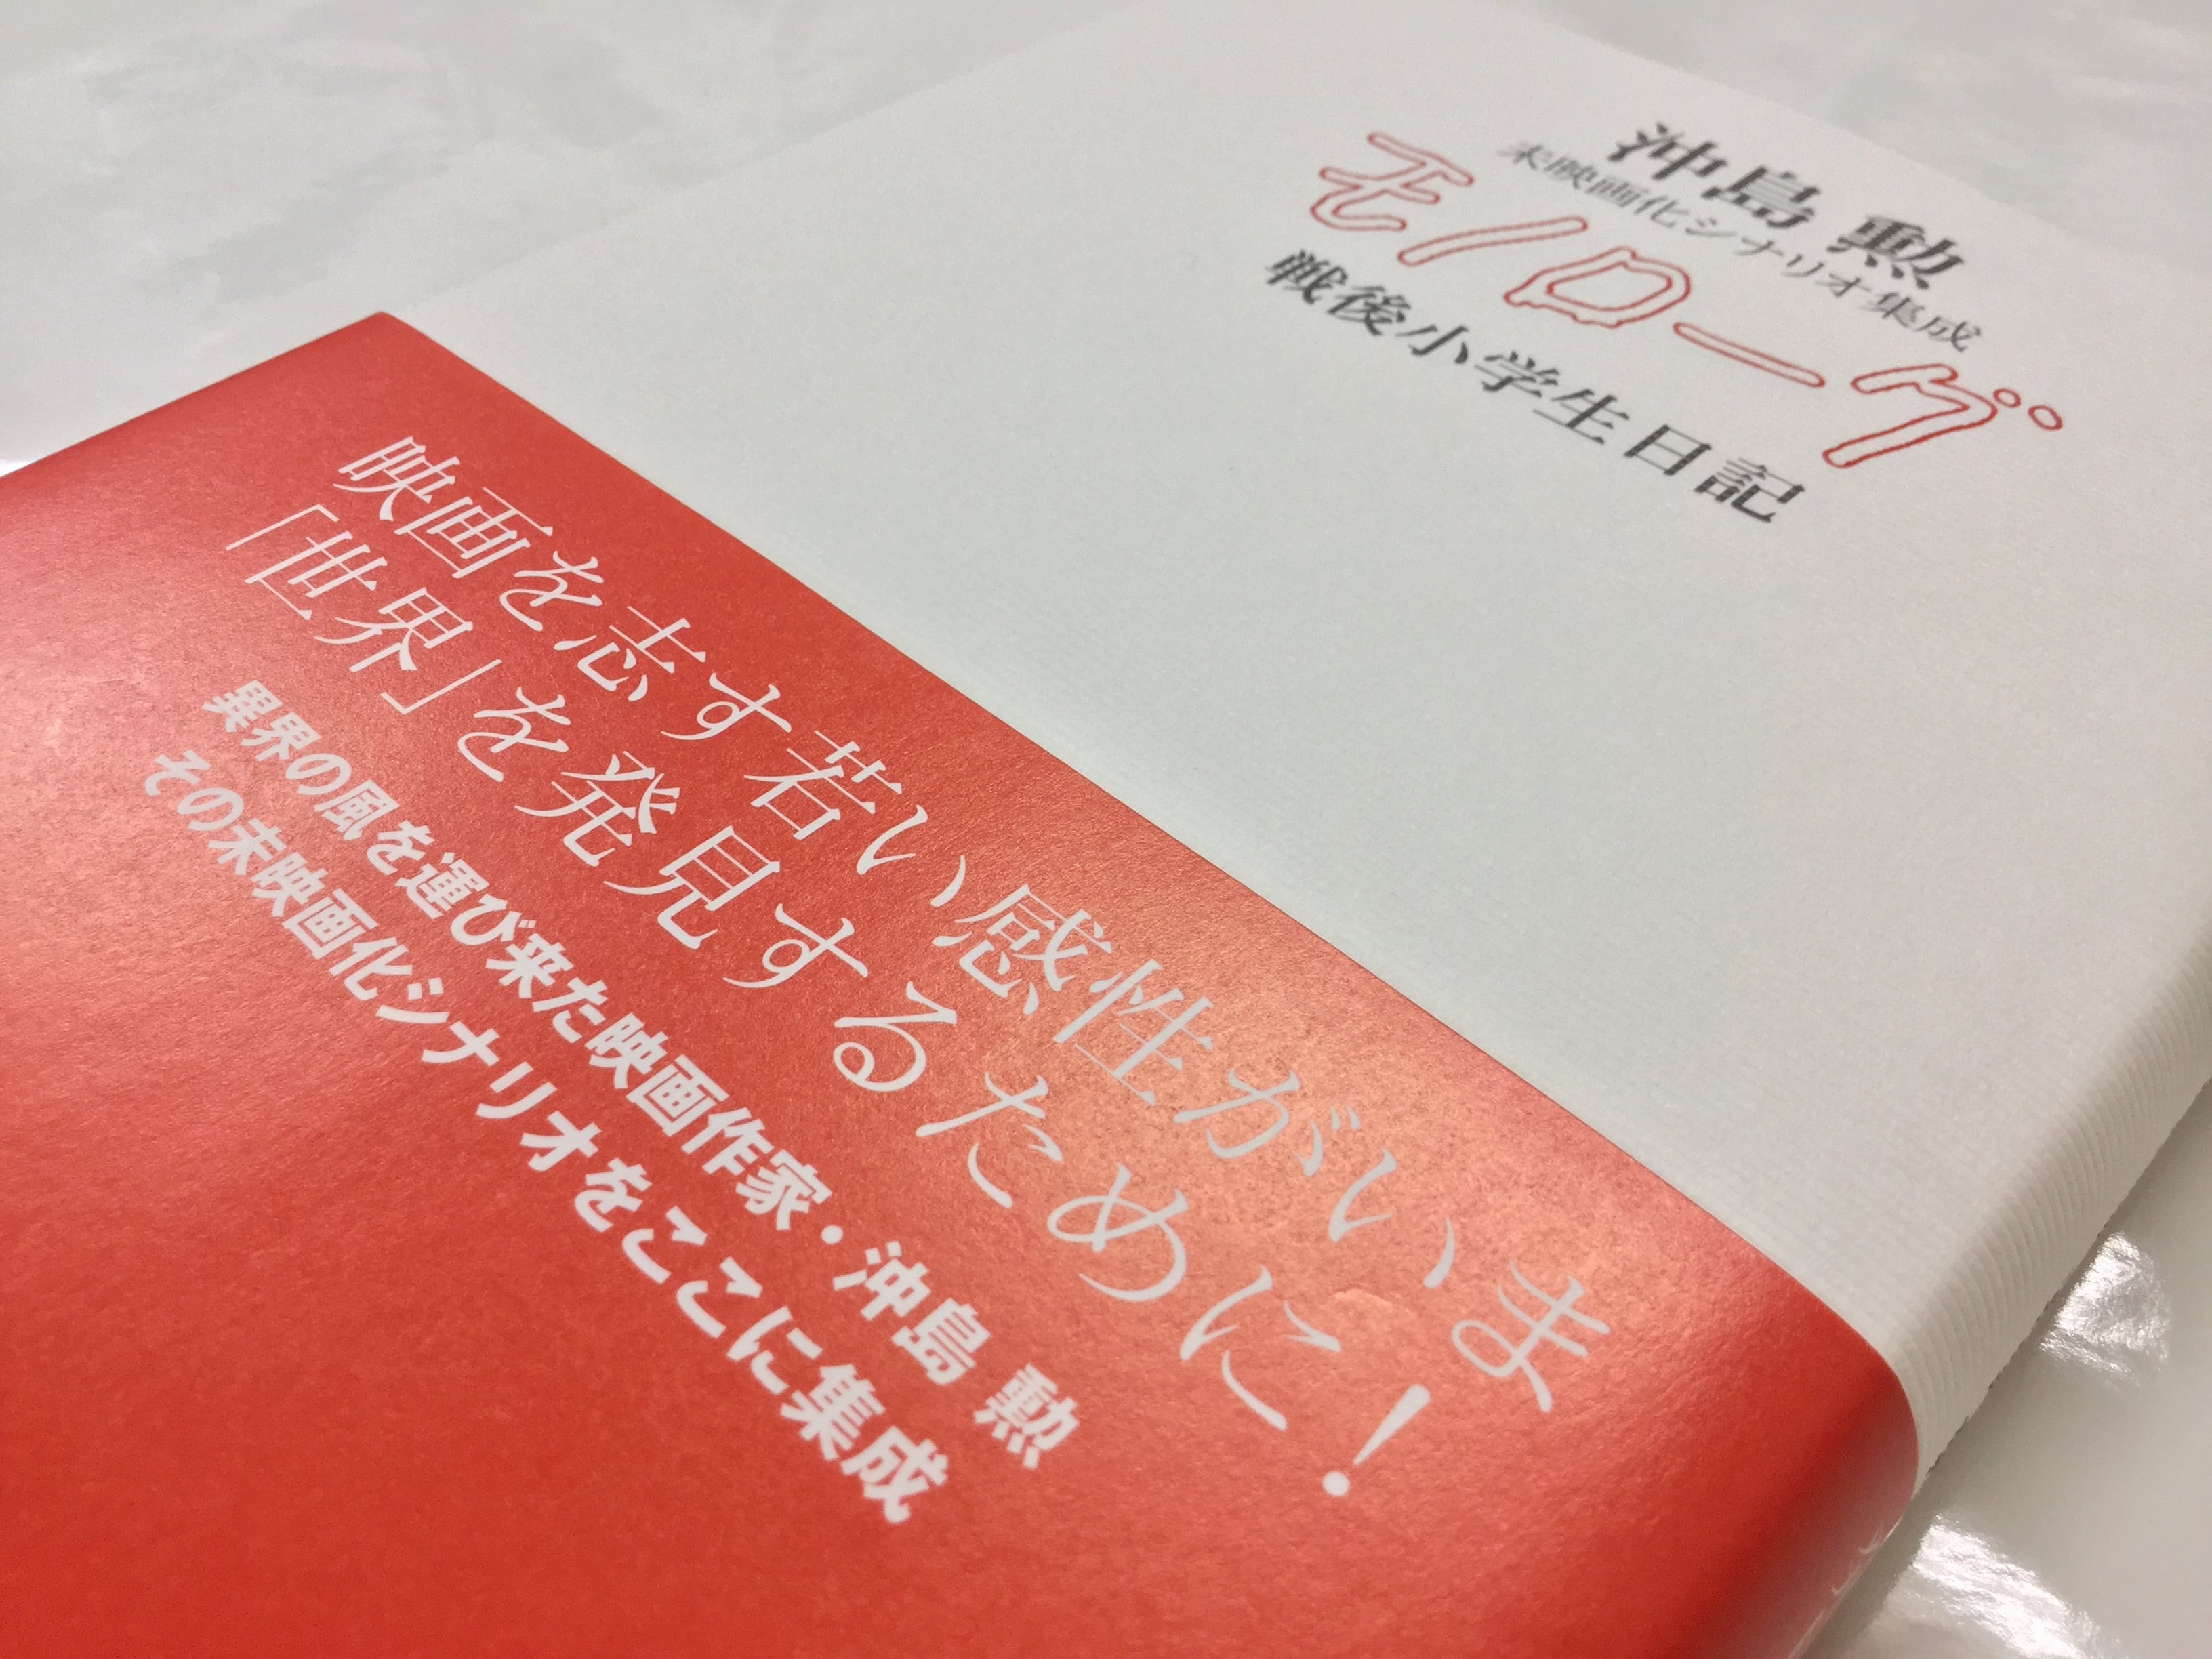 沖島 勲
未映画化シナリオ集成
モノローグ
戦後小学生日記
映画を志す若い感性がいま
「世界」を発見するために！
異界の風を運び来た映画作家・沖島 勲
その未映画化シナリオをここに集成